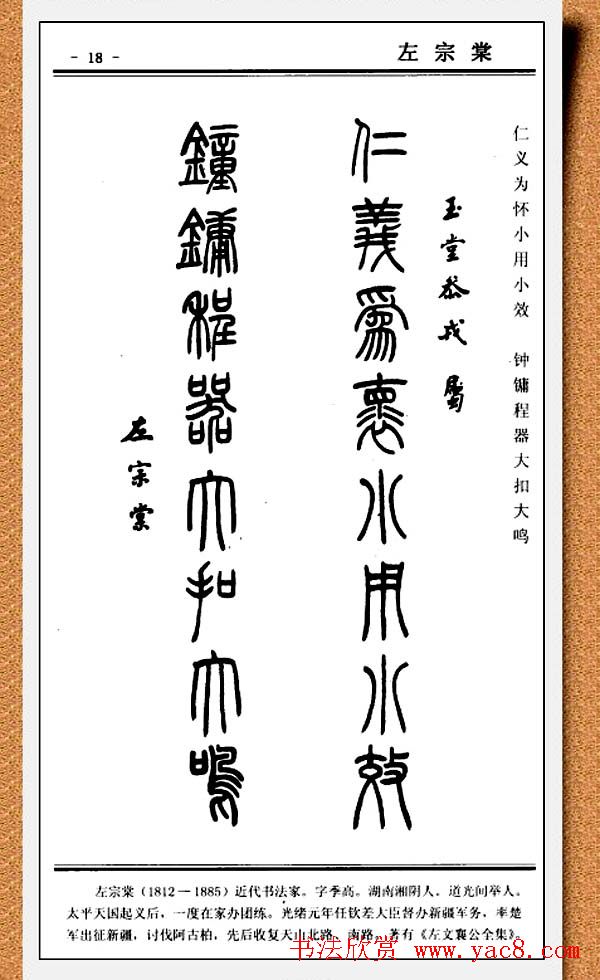 - 18 -
左宗棠
仁义为怀小用小效 钟镛程器大扣大鸣
玉堂恭戎屬
仁義爲褱小用小效
鐘鏞程器大扣大鳴
左宗棠
左宗棠（1812－1885）近代书法家。字季高。湖南湘阴人。道光间举人。
太平天国起义后，一度在家办团练。光绪元年任钦差大臣督办新疆军务，率楚
军出征新疆，讨伐阿古柏，先后收复天山北路、南路。著有《左文襄公全集》。
书法欣赏 www.yac8.com